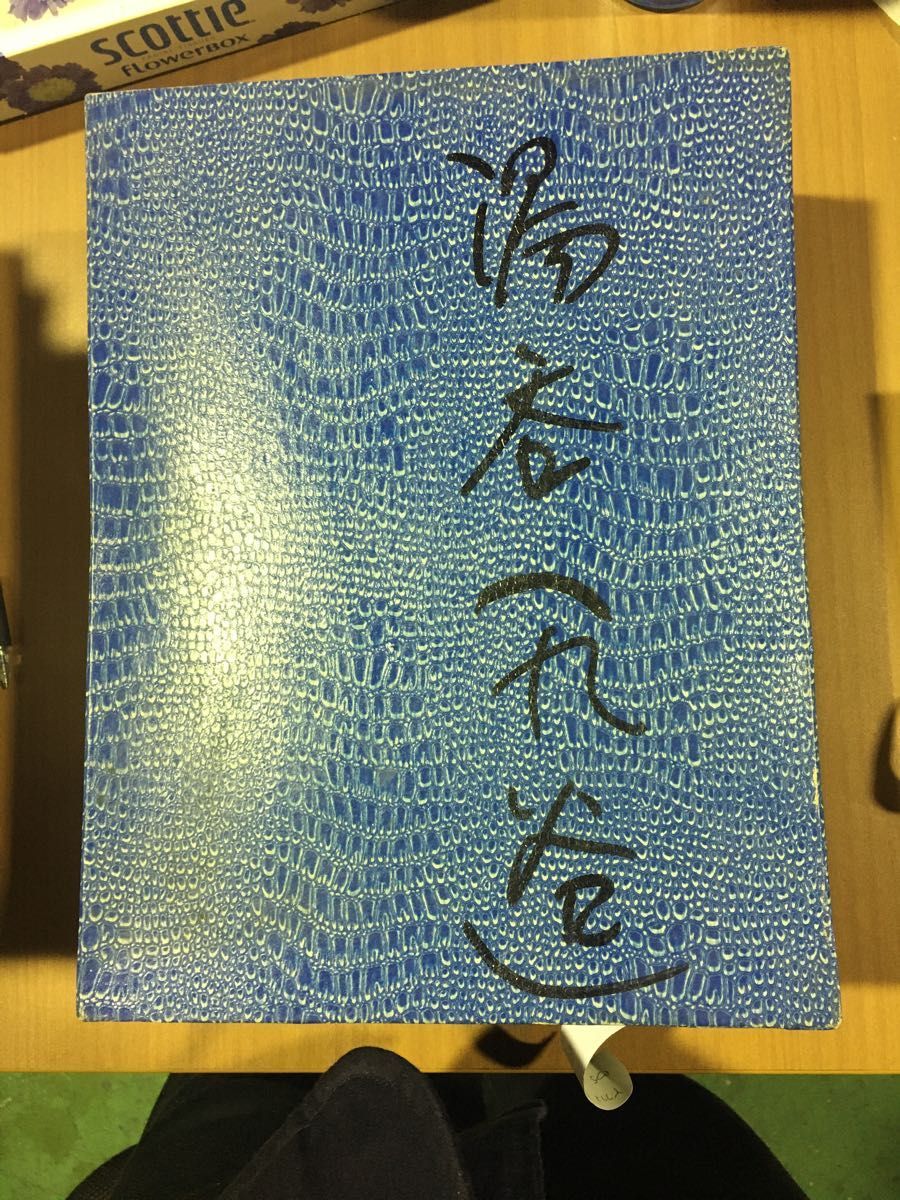 scottie
FLOWERBOX
湯呑(九谷)